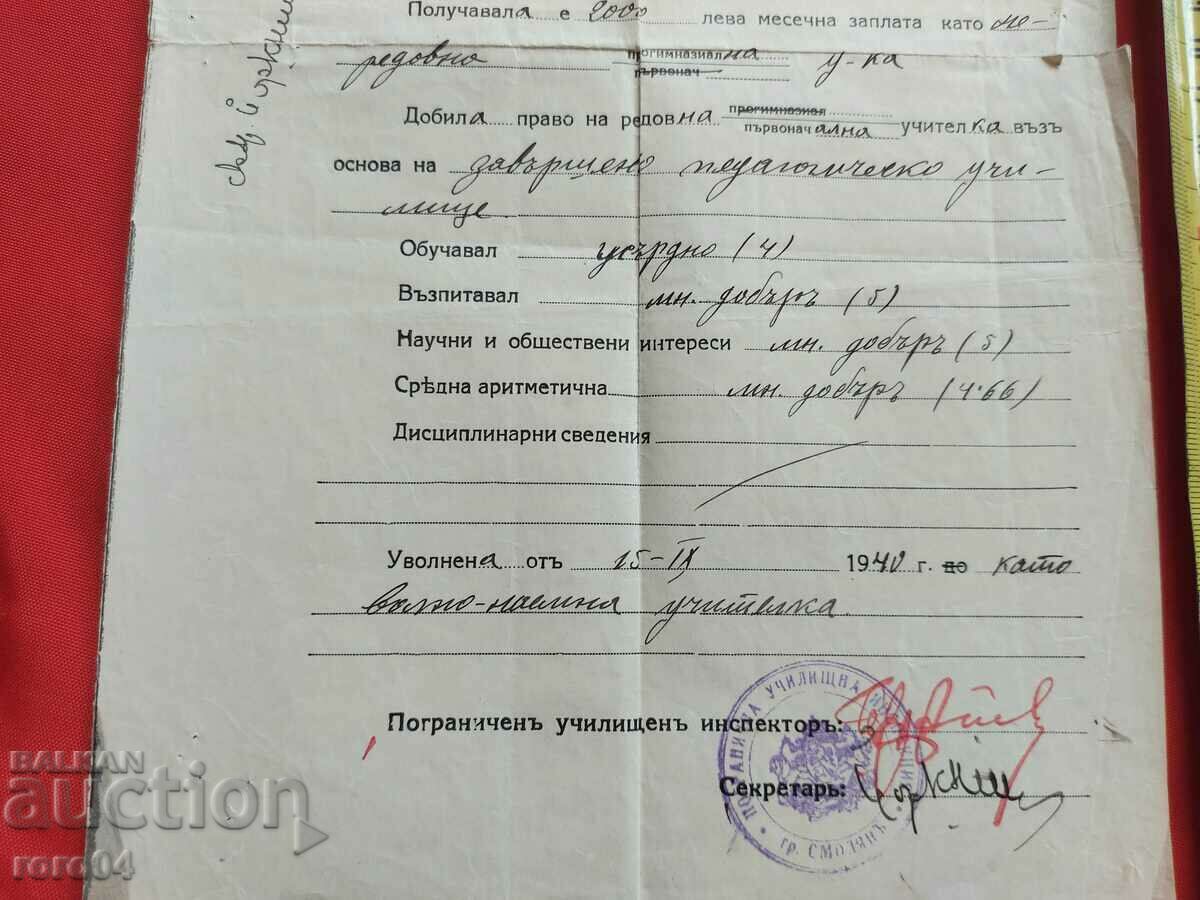 Получавала е 2000 лева месечна заплата като не-
редовна прогимназиална у-ка
първонач
Добила право на редовна прогимназиал учителка възъ
първоначална
основа на завършено педагогическо учи-
лище
Обучавал усърдно (4)
Възпитавал мн. добъръ (5)
Научни и обществени интереси мн. добъръ (5)
Срѣдна аритметична мн. добъръ (4.66)
Дисциплинарни сведения
Уволнена отъ 15-IX 1940 г. до като
волно-наемна учителка.
Пограниченъ училищенъ инспекторъ:
Секретарь:
УЧИЛИЩНА
гр. СМОЛЯНЪ
BALKAN
auction
roro04